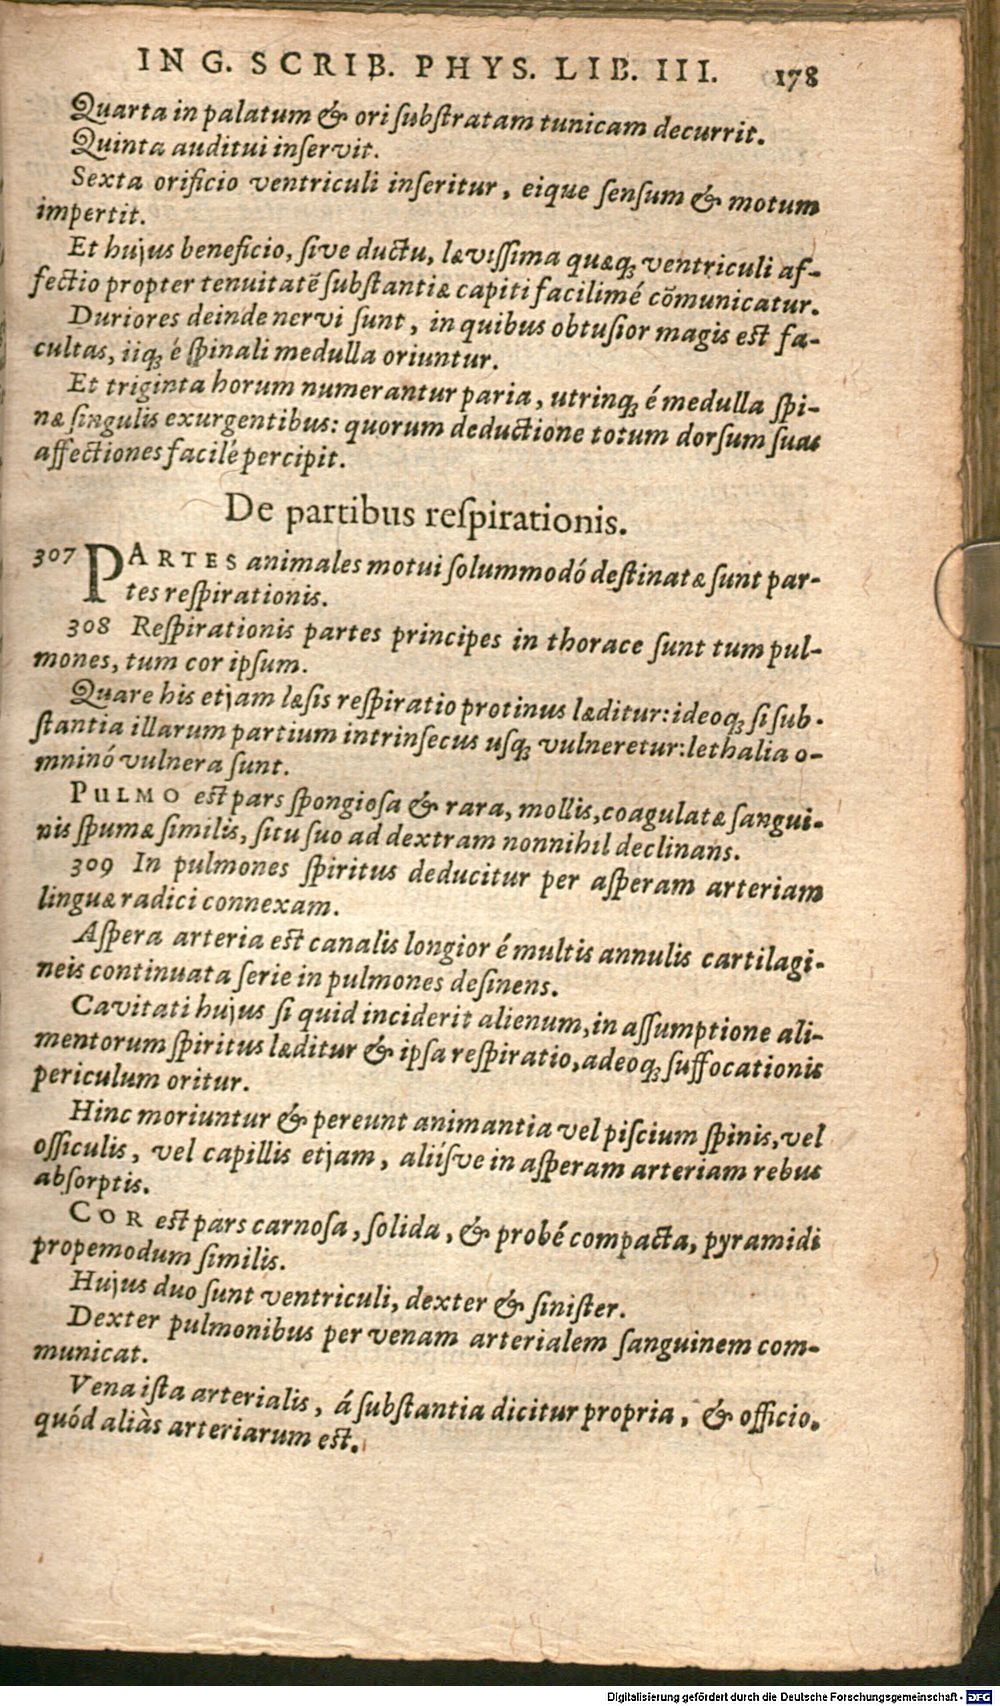 IN G. SCRIB. PHYS. LIB. III. 178
Quarta in palatum & ori ſubſtratam tunicam decurrit.
Quinta auditui inſervit.
Sexta orificio ventriculi inſeritur, eique ſenſum & motum
impertit.
Et hujus beneficio, ſive ductu, lævıſſima quæq; ventriculi af-
fectio propter tenuitatē ſubſtantiæ capiti facilimé cõmunicatur.
Duriores deinde nervi ſunt, in quibus obtuſior magis eſt fa-
cultas, iiq; é ſpinali medulla oriuntur.
Et triginta horum numerantur paria, utrinq; é medulla ſpi-
næ ſingulis exurgentibus: quorum deductione totum dorſum ſuas
affectiones facilé percipit.
De partibus reſpirationis.
307 PARTES animales motui ſolummodó deſtinatæ ſunt par-
tes reſpirationis.
308 Reſpirationis partes principes in thorace ſunt tum pul-
mones, tum cor ipſum.
Quare his etjam læſis reſpiratio protinus læditur: ideoq; ſi ſub-
ſtantia illarum partium intrinſecus uſq; vulneretur: lethalia o-
mninó vulnera ſunt.
PULMO eſt pars ſpongioſa & rara, mollis, coagulatæ ſangui-
nis ſpumæ ſimilis, ſitu ſuo ad dextram nonnihil declinans.
309 In pulmones ſpiritus deducitur per aſperam arteriam
linguæ radici connexam.
Aſpera arteria eſt canalis longior é multis annulis cartilagi-
neis continuata ſerie in pulmones deſinens.
Cavitati hujus ſi quid inciderit alienum, in aſſumptione ali-
mentorum ſpiritus læditur & ipſa reſpiratio, adeoq; ſuffocationis
periculum oritur.
Hinc moriuntur & pereunt animantia vel piſcium ſpinis, vel
oſſiculis, vel capillis etjam, aliíſve in aſperam arteriam rebus
abſorptis.
COR eſt pars carnoſa, ſolida, & probé compacta, pyramidi
propemodum ſimilis.
Hujus duo ſunt ventriculi, dexter & ſiniſter.
Dexter pulmonibus per venam arterialem ſanguinem com-
municat.
Vena iſta arterialis, á ſubſtantia dicitur propria, & officio,
quód aliàs arteriarum eſt.
Digitalisierung gefördert durch die Deutsche Forschungsgemeinschaft - DFG